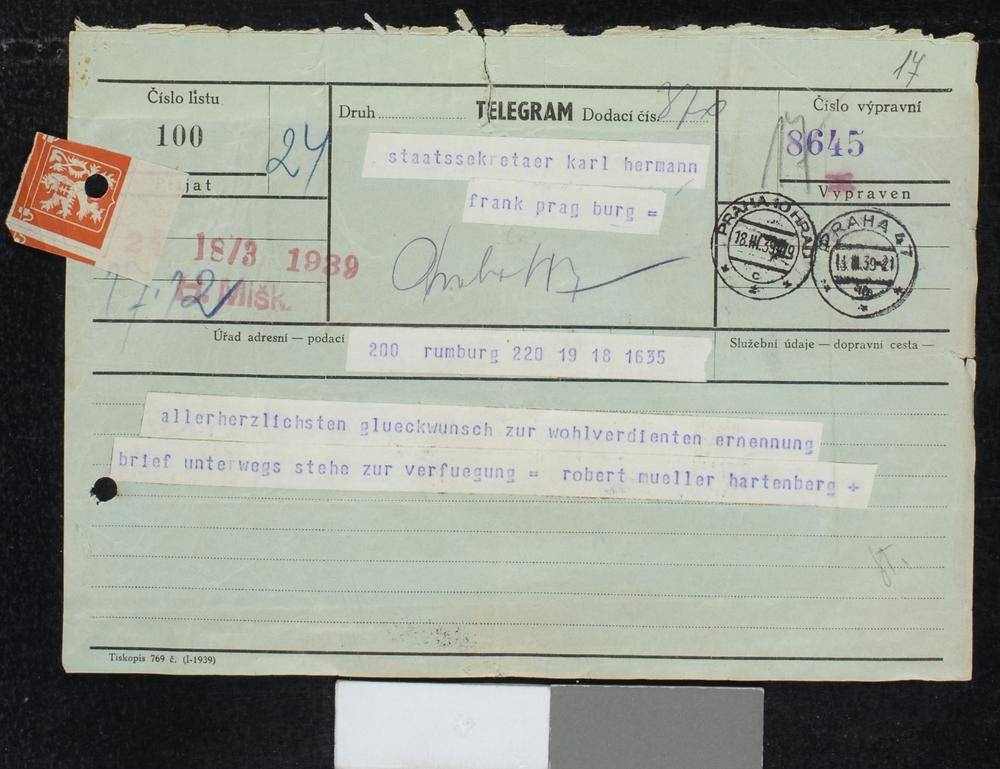 17
Číslo listu
100
24
Druh
TELEGRAM
Dodací čís.
Číslo výpravní
8645
staatssekretaer karl hermann
frank prag burg =
Vypraven
PRAHA 10 HRAD
18.III.39-19
C
PRAHA 47
18/3 1939
H. Mišk.
Úřad adresní — podací
200 rumburg 220 19 18 1635
Služební údaje — dopravní cesta —
allerherzlichsten glueckwunsch zur wohlverdienten ernennung
brief unterwegs stehe zur verfuegung = robert mueller hartenberg +
Tiskopis 769 č. (I-1939)